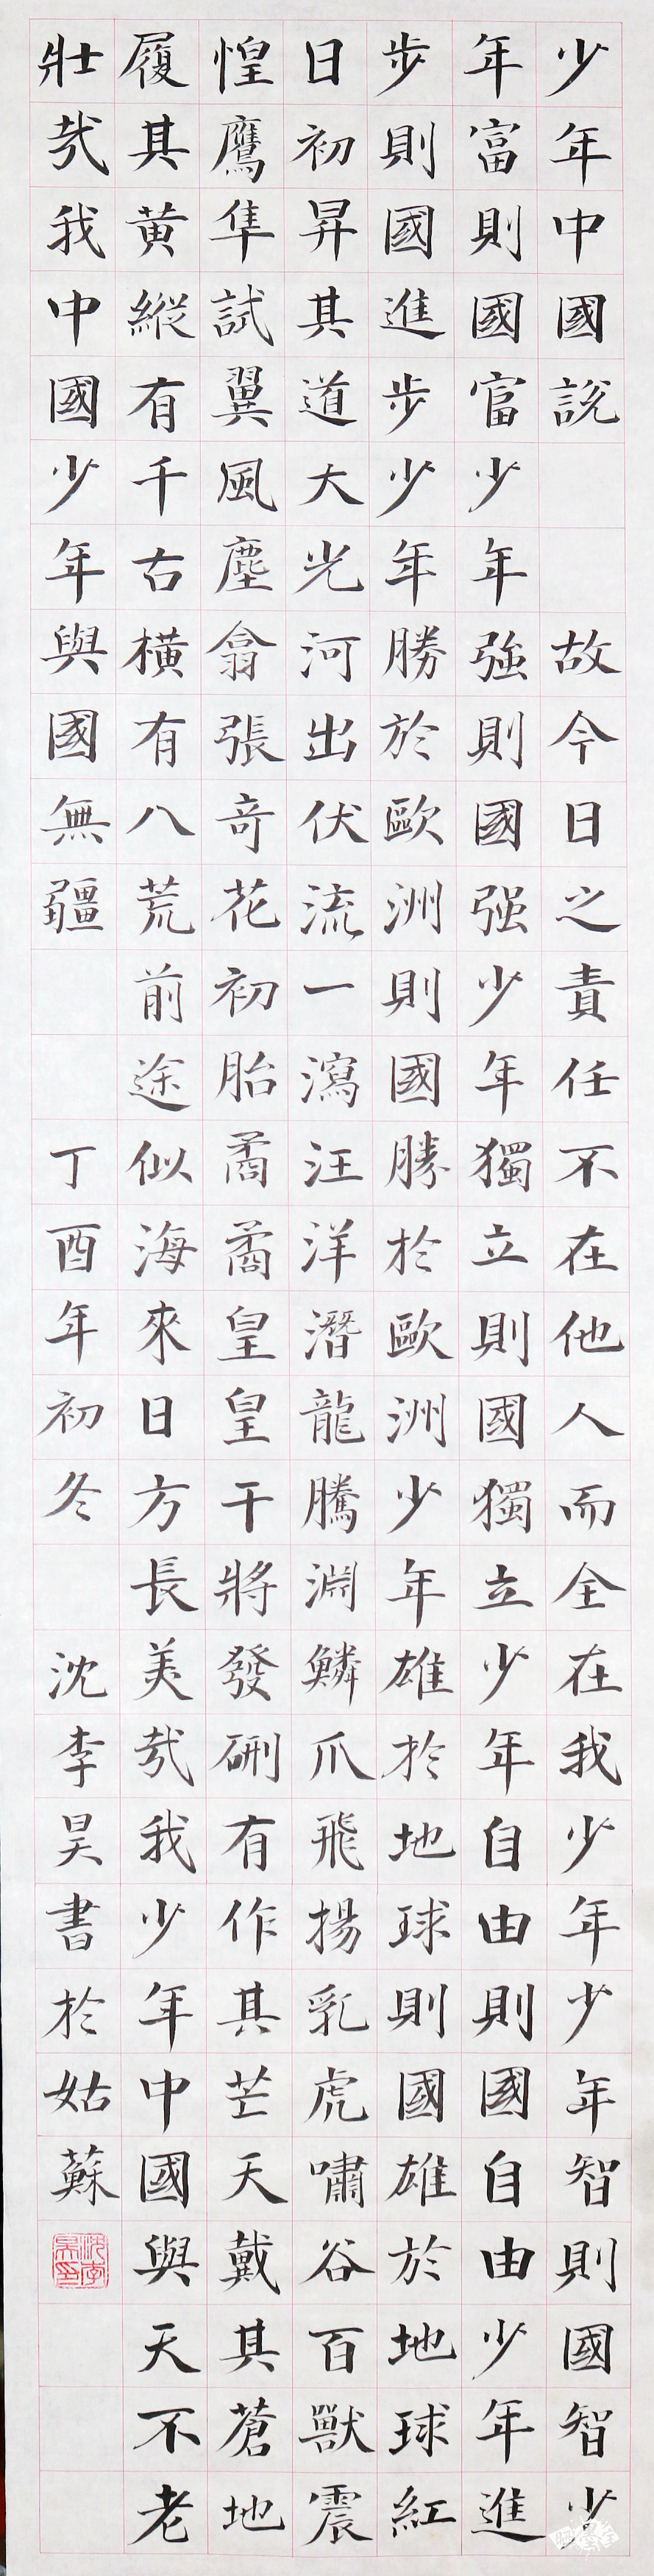 少年中國說 故今日之責任不在他人而全在我少年少年智則國智少
年富則國富少年強則國强少年獨立則國獨立少年自由則國自由少年進
步則國進步少年勝於歐洲則國勝於歐洲少年雄於地球則國雄於地球紅
日初昇其道大光河出伏流一瀉汪洋潛龍騰淵鱗爪飛揚乳虎嘯谷百獸震
惶鷹隼試翼風塵翕張奇花初胎矞矞皇皇干將發硎有作其芒天戴其蒼地
履其黄縱有千古橫有八荒前途似海來日方長美哉我少年中國與天不老
壯哉我中國少年與國無疆 丁酉年初冬 沈李昊書於姑蘇
沈李昊印